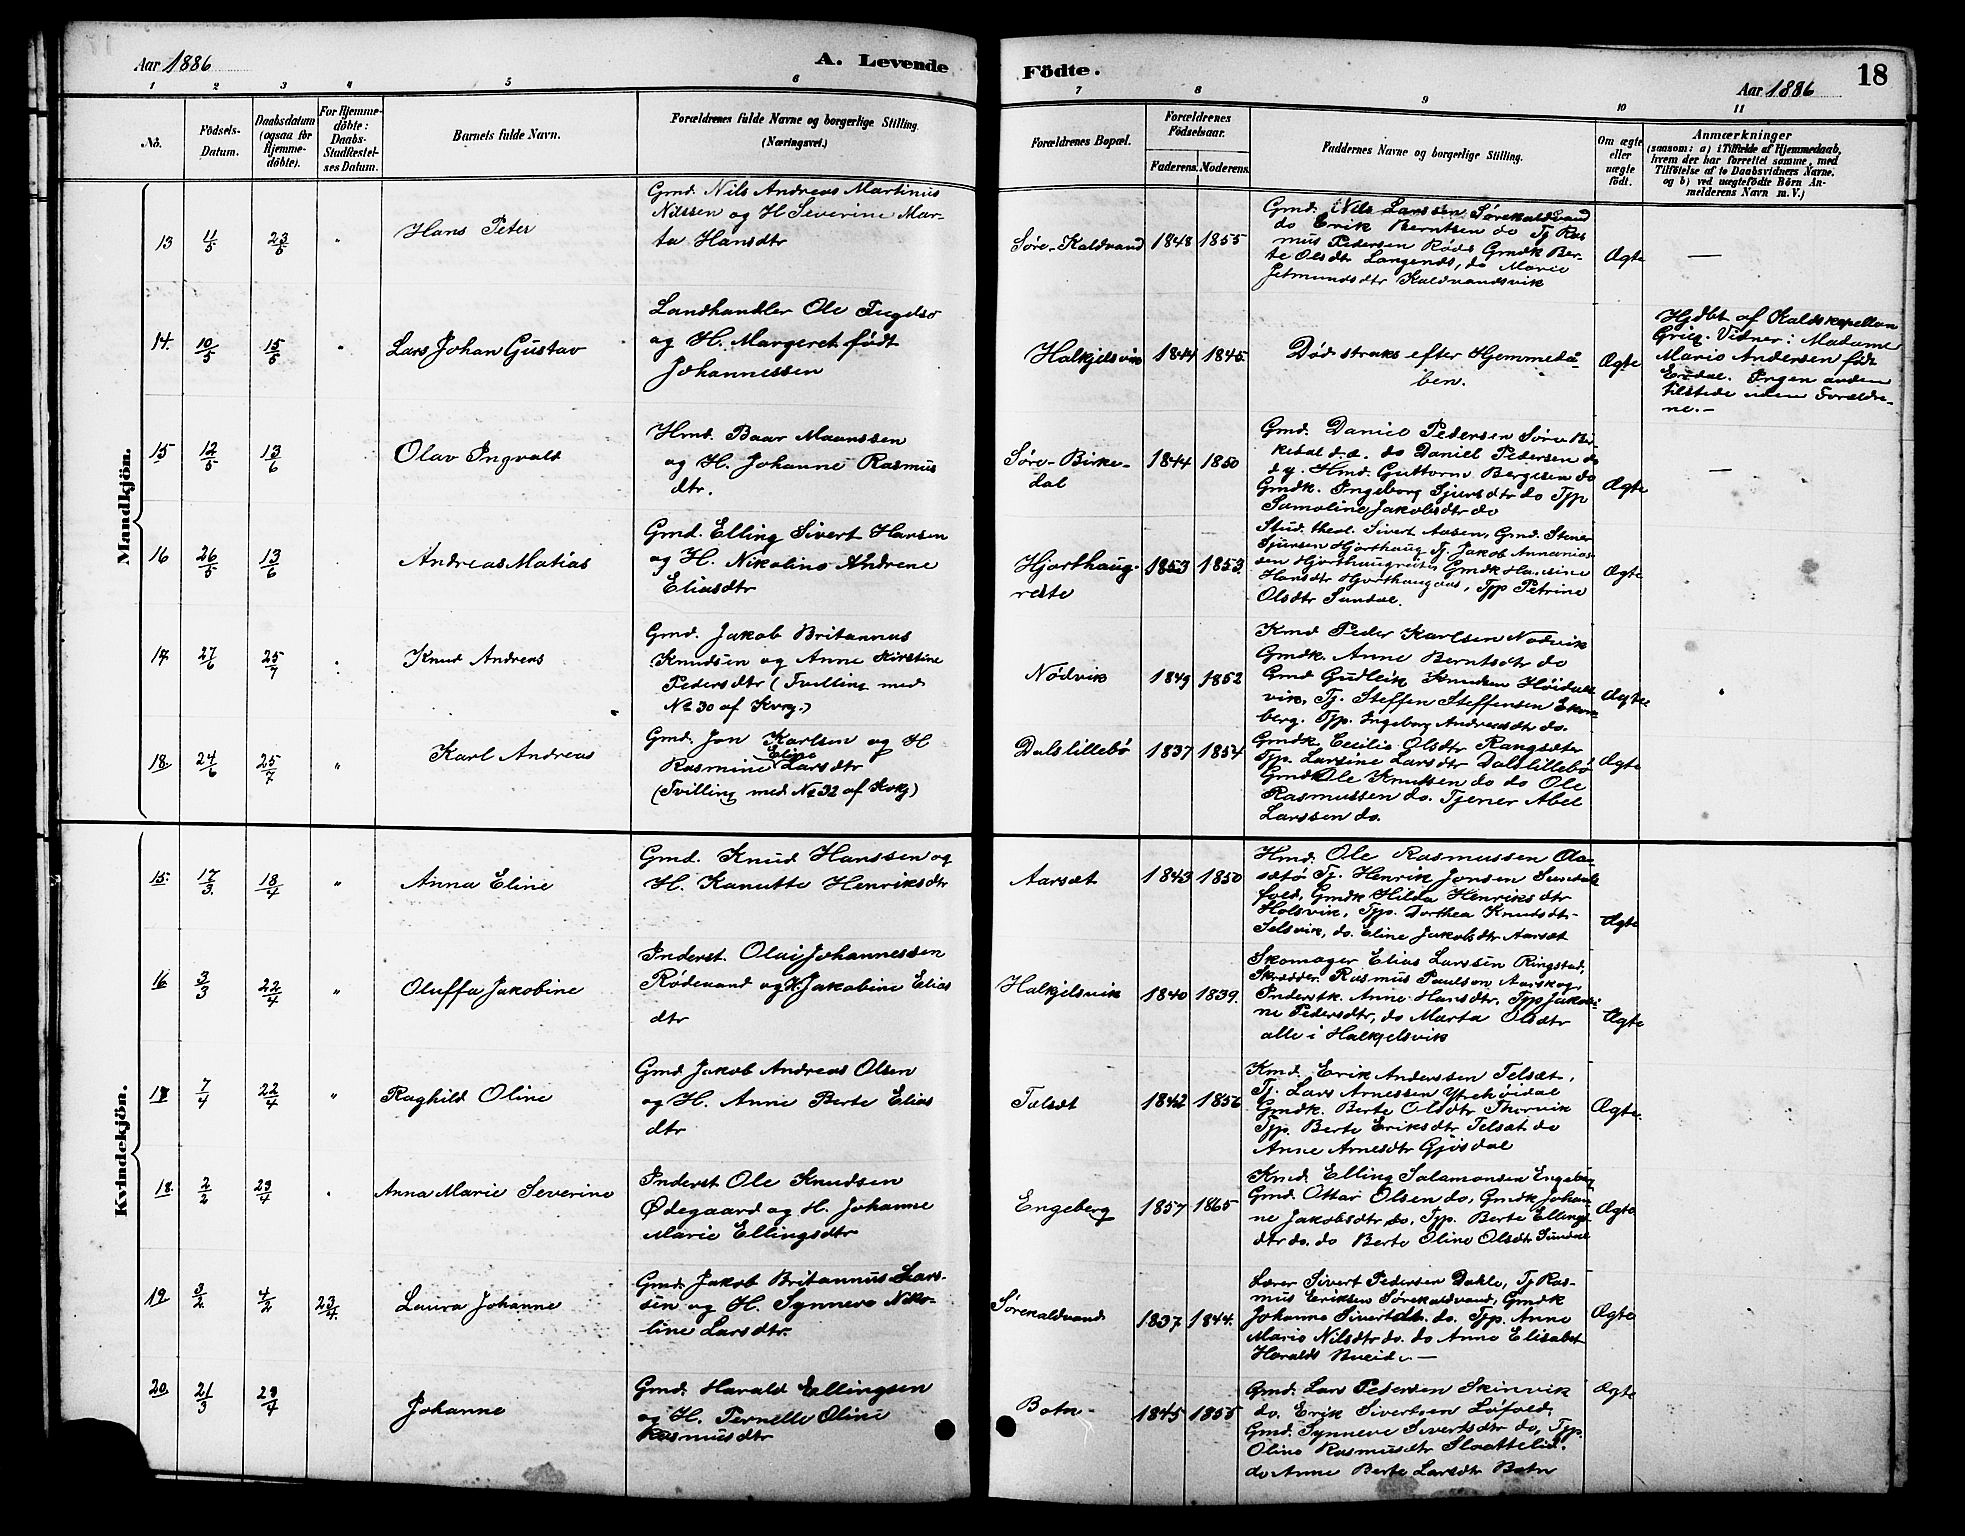 Aar 1886
A. Levende
Födte.
Aar 1886
18
1 2 3 4 5 6 7 8 9 10 11
No.
Födsels-
Datum.
Daabsdatum
(ogsaa for
Hjemme-
döbte).
For Hjemme-
döbte:
Daabs-
Stadfæstel-
ses Datum.
Barnets fulde Navn.
Forældrenes fulde Navne og borgerlige Stilling.
(Næringsvei.)
Forældrenes Bopæl.
Forældrenes
Födselsaar.
Faderens. Moderens.
Faddernes Navne og borgerlige Stilling.
Om ægte
eller
uægte
födt.
Anmærkninger
(saasom: a) i Tilfælde af Hjemmedaab,
hvem der har forrettet samme, med
Tilföielse af to Daabsvidners Navne.
og b) ved uægtefödte Börn An-
melderens Navn m. V.)
Mandkjön.
13 11/5 23/5 "
Hans Peter
Gmd. Nils Andreas Martinus
Nilssen og H Severine Mar-
ta Hansdtr
Søre-Kaldvand 1848 1855
Gmd. Nils Larssen Sørekaldvand
do Erik Berntsen do Tj Ras
mus Pedersen Røds Gmdk Ber-
te Olsdtr Langenes, do Marie
Jetmundsdtr Kaldvandsvik
Ægte
—
14. 10/5 15/5 "
Lars Johan Gustav
Landhandler Ole
og H. Margeret født
Johannessen
Halkjelsvik 1844 1845
Død straks efter Hjemmedå-
ben.
Ægte
Hjdbt af Kaldskapellan
Grieg. Vidner: Madame
Marie Andersen født
Ingen anden
tilstede uden Forældre-
ne.—
15 12/5 13/6
Olav Ingvald
Hmd. Baar Maanssen
og H. Johanne Rasmus
dtr.
Søre-Birke-
dal
1844 1850
Gmd. Daniel Pedersen Søre Bir-
kedal d.æ. do Daniel Pedersen do
d.y. Hmd. Guttorm Bergesen do
Gmdk. Ingeborg Sjursdtr do Tjp
Samoline Jakobsdtr do
Ægte
—
16 26/5 13/6
Andreas Matias
Gmd. Elling Sivert Hansen
og H. Nikoline Andrene
Eliasdtr
Hjorthaug-
reite
1853 1853.
Stud. theol. Sivert Aasen, Gmd. Stener
Sjursen Hjorthaug Tj. Jakob Annanias-
sen Hjorthaugreite, Gmdk Hansine
Hansdtr Hjorthaugaas, Tjp Petrine
Olsdtr Sundal.
Ægte
17 27/6 25/7 "
Knud Andreas
Gmd. Jakob Britannus
Knudsen og Anne Kirstine
Pedersdtr (Tvilling med
No 30 af Kvkj.)
Nødvik 1849 1852
Kmd Peder Karlsen Nødvik
Gmdk. Anne Berntsdtr do
Gmd Gudleik Knudsen Høidals
vik, Tj. Steffen Steffensen
berg. Tjp. Ingeborg Andreasdtr do.
Ægte
18. 24/6 25/7 "
Karl Andreas
Gmd. Jon Karlsen og H
Eline
Rasmine Larsdtr
(Tvilling med No 32 af Kvkj)
Dalslillebø 1837 1854
Gmdk. Cecilie Olsdtr Rangsæter
Tjp. Larsine Larsdtr Dalslillebø
Gmd Ole Knutsen do do Ole
Rasmussen do. Tjener Abel
Larssen do.
Ægte
Kvindekjön.
15. 17/3 18/4 "
Anna Eline
Gmd. Knud Hanssen og
H. Kanutte Henriksdtr
Aarsæt 1843 1850
Hmd. Ole Rasmussen Aar-
sætø Tj. Henrik Jonsen Sundals
fold, Gmdk Hilda Henriksdtr
Holsvik, Tjp. Dorthea Knudsdtr
do. Eline Jakobsdtr Aarsæt
Ægte
16 3/3 22/4 "
Oluffa Jakobine
Inderst. Olai Johannessen
Rødsvand og H. Jakobine Elias
dtr
Halkjelsvik 1840 1839.
Skomager Elias Larssen Ringstad,
Skrædder. Rasmus Paulsen Aarskog,
Inderstk. Anne Hansdtr, Tjp Jakobi-
ne Pedersdtr, do Marta Olsdtr
alle i Halkjelsvik
Ægte
17 7/4 22/4 "
Raghild Oline
Gmd Jakob Andreas Olsen
og H. Anne Berte Elias
dtr
Telsæt 1842 1856
Kmd. Erik Anderssen Telsæt,
Tj. Lars Arnessen Ytrehøidal
Gmdk. Berte Olsdtr Thorvik
Tjp. Berte Eriksdtr Telsæt do
Anne Arnesdtr Gjøsdal
Ægte.
18. 2/2 29/4 "
Anna Marie Severine
Inderst Ole Knudsen
Ødegaard og H. Johanne
Marie Ellingsdtr
Engeberg 1857 1865
Kmd. Elling Salamonsen Engeberg
Gmd. Ottar Olsen do, Gmdk Johan-
ne Jakobsdtr do. Tjp. Berte Ellings
dtr do. do Berte Oline Olsdtr Sundal
Ægte
19. 3/2 4/2 23/4.
Laura Johanne
Gmd. Jakob Britannus Lars-
sen og H. Synneve Niko-
line Larsdtr.
Sørekaldvand 1837 1844.
Lærer Sivert Pedersen Dahle, Tj Ras-
mus Eriksen Sørekaldvand, Gmdk
Johanne Sivertdtr. do. Tjp. Anne
Marie Nilsdtr do. do Anne Elisabet
Haralds —
Ægte
20. 21/3 29/4
Johanne
Gmd. Harald Ellingsen
og H. Pernelle Oline
Rasmusdtr
Botn 1845 1855
Gmd. Lars Pedersen Skinvik
do. Erik Sivertsen Løfold.
Gmd. Synneve Sivertsdtr do, Tjp.
Oline Rasmusdtr Slaattelid.
do Anne Berte Larsdtr Botn
Ægte